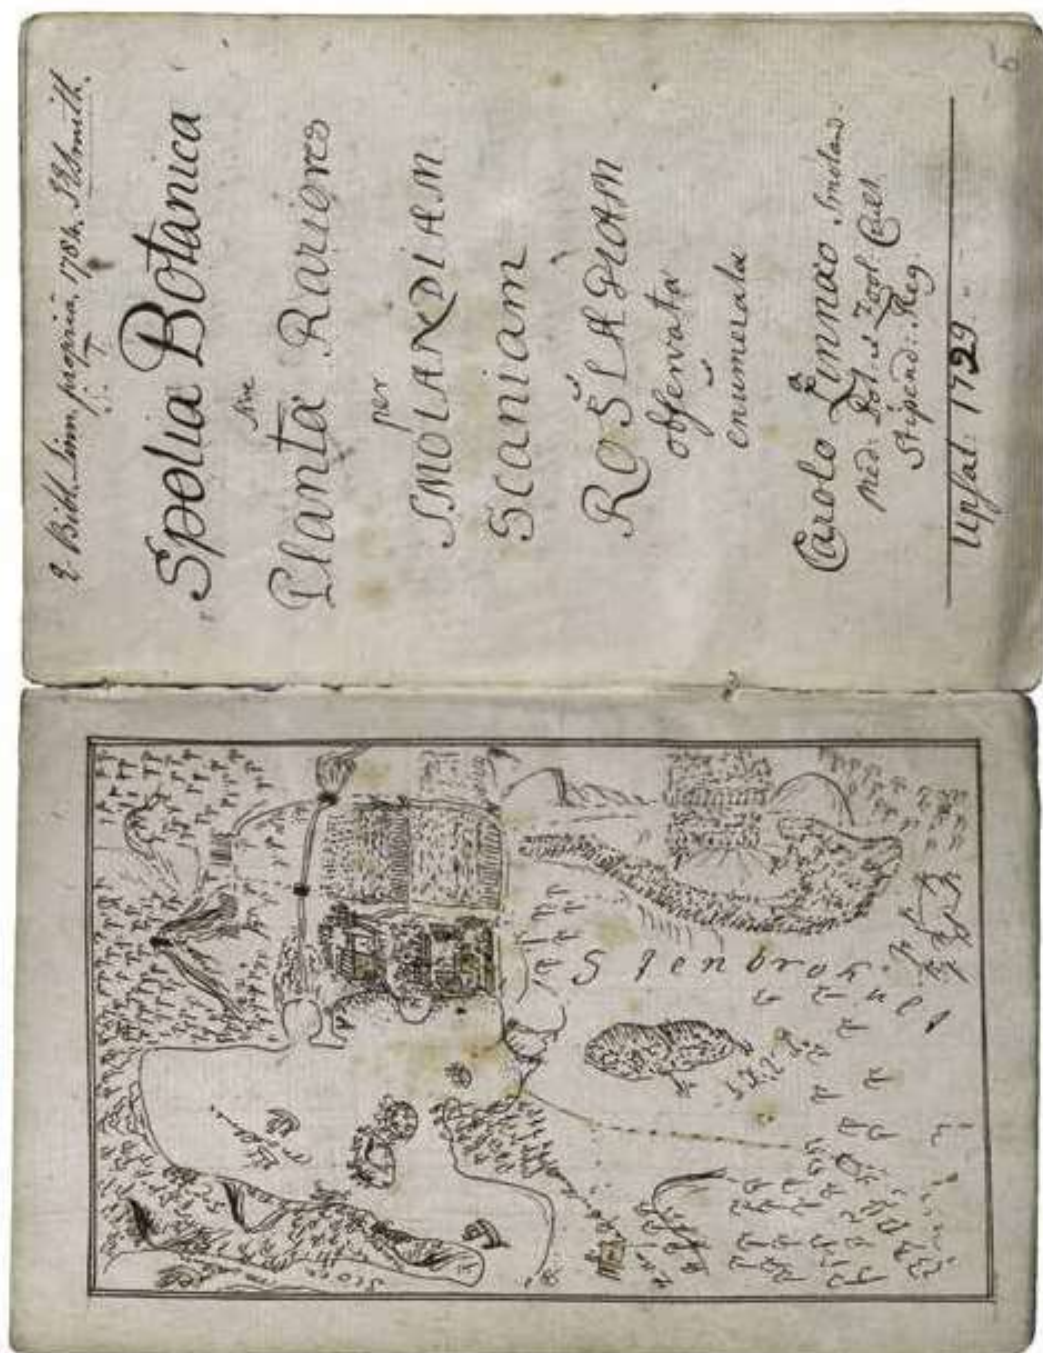 E Bibl. Linn. propria, 1784, JESmith.
Spolia Botanica
sive
Plantæ Rariores
per
SMOLANDIAM
Scaniam
ROSLAGIAM
observata
enumerata
a
Carolo Linnæo Smoland.
Med: Bot. et Zool. Cult.
Stipend: Reg.
Upsal: 1729.
Stenbrohult